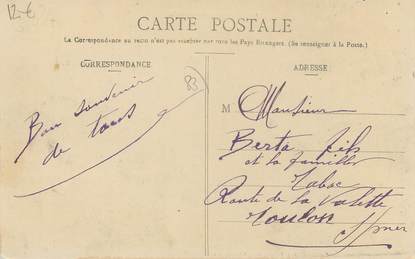 12-€
CARTE POSTALE
La Correspondance au recto n'est pas acceptée par tous les Pays Étrangers. (Se renseigner à la Poste.)
CORRESPONDANCE
83
Bon souvenir
de tous
ADRESSE
M Monsieur
Berta fils
et la famille
Tabac
Route de la Valette
Toulon